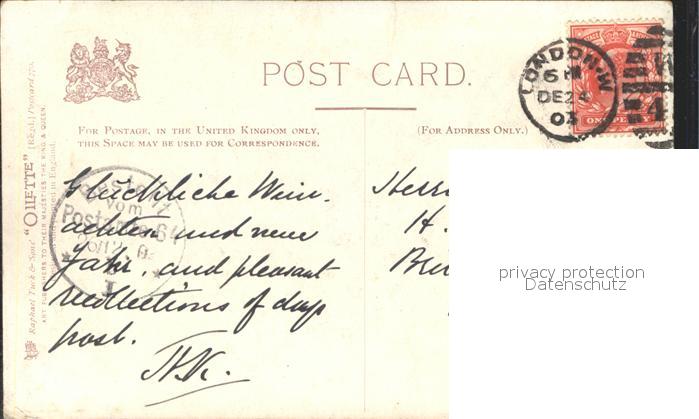 POST CARD.
FOR POSTAGE, IN THE UNITED KINGDOM ONLY,
THIS SPACE MAY BE USED FOR CORRESPONDENCE.
(FOR ADDRESS ONLY.)
LONDON.W
6 PM
DE 24
03
ONE PENNY
Raphael Tuck & Sons' "OILETTE" [Regd.] Postcard 770.
ART PUBLISHERS TO THEIR MAJESTIES THE KING & QUEEN.
Bestellt
vom
Postamte 64
26/12
Glückliche Wein-
achten und neue
Jahr, and pleasant
recollections of days
past.
H.K.
Herrn
H.
privacy protection
Datenschutz